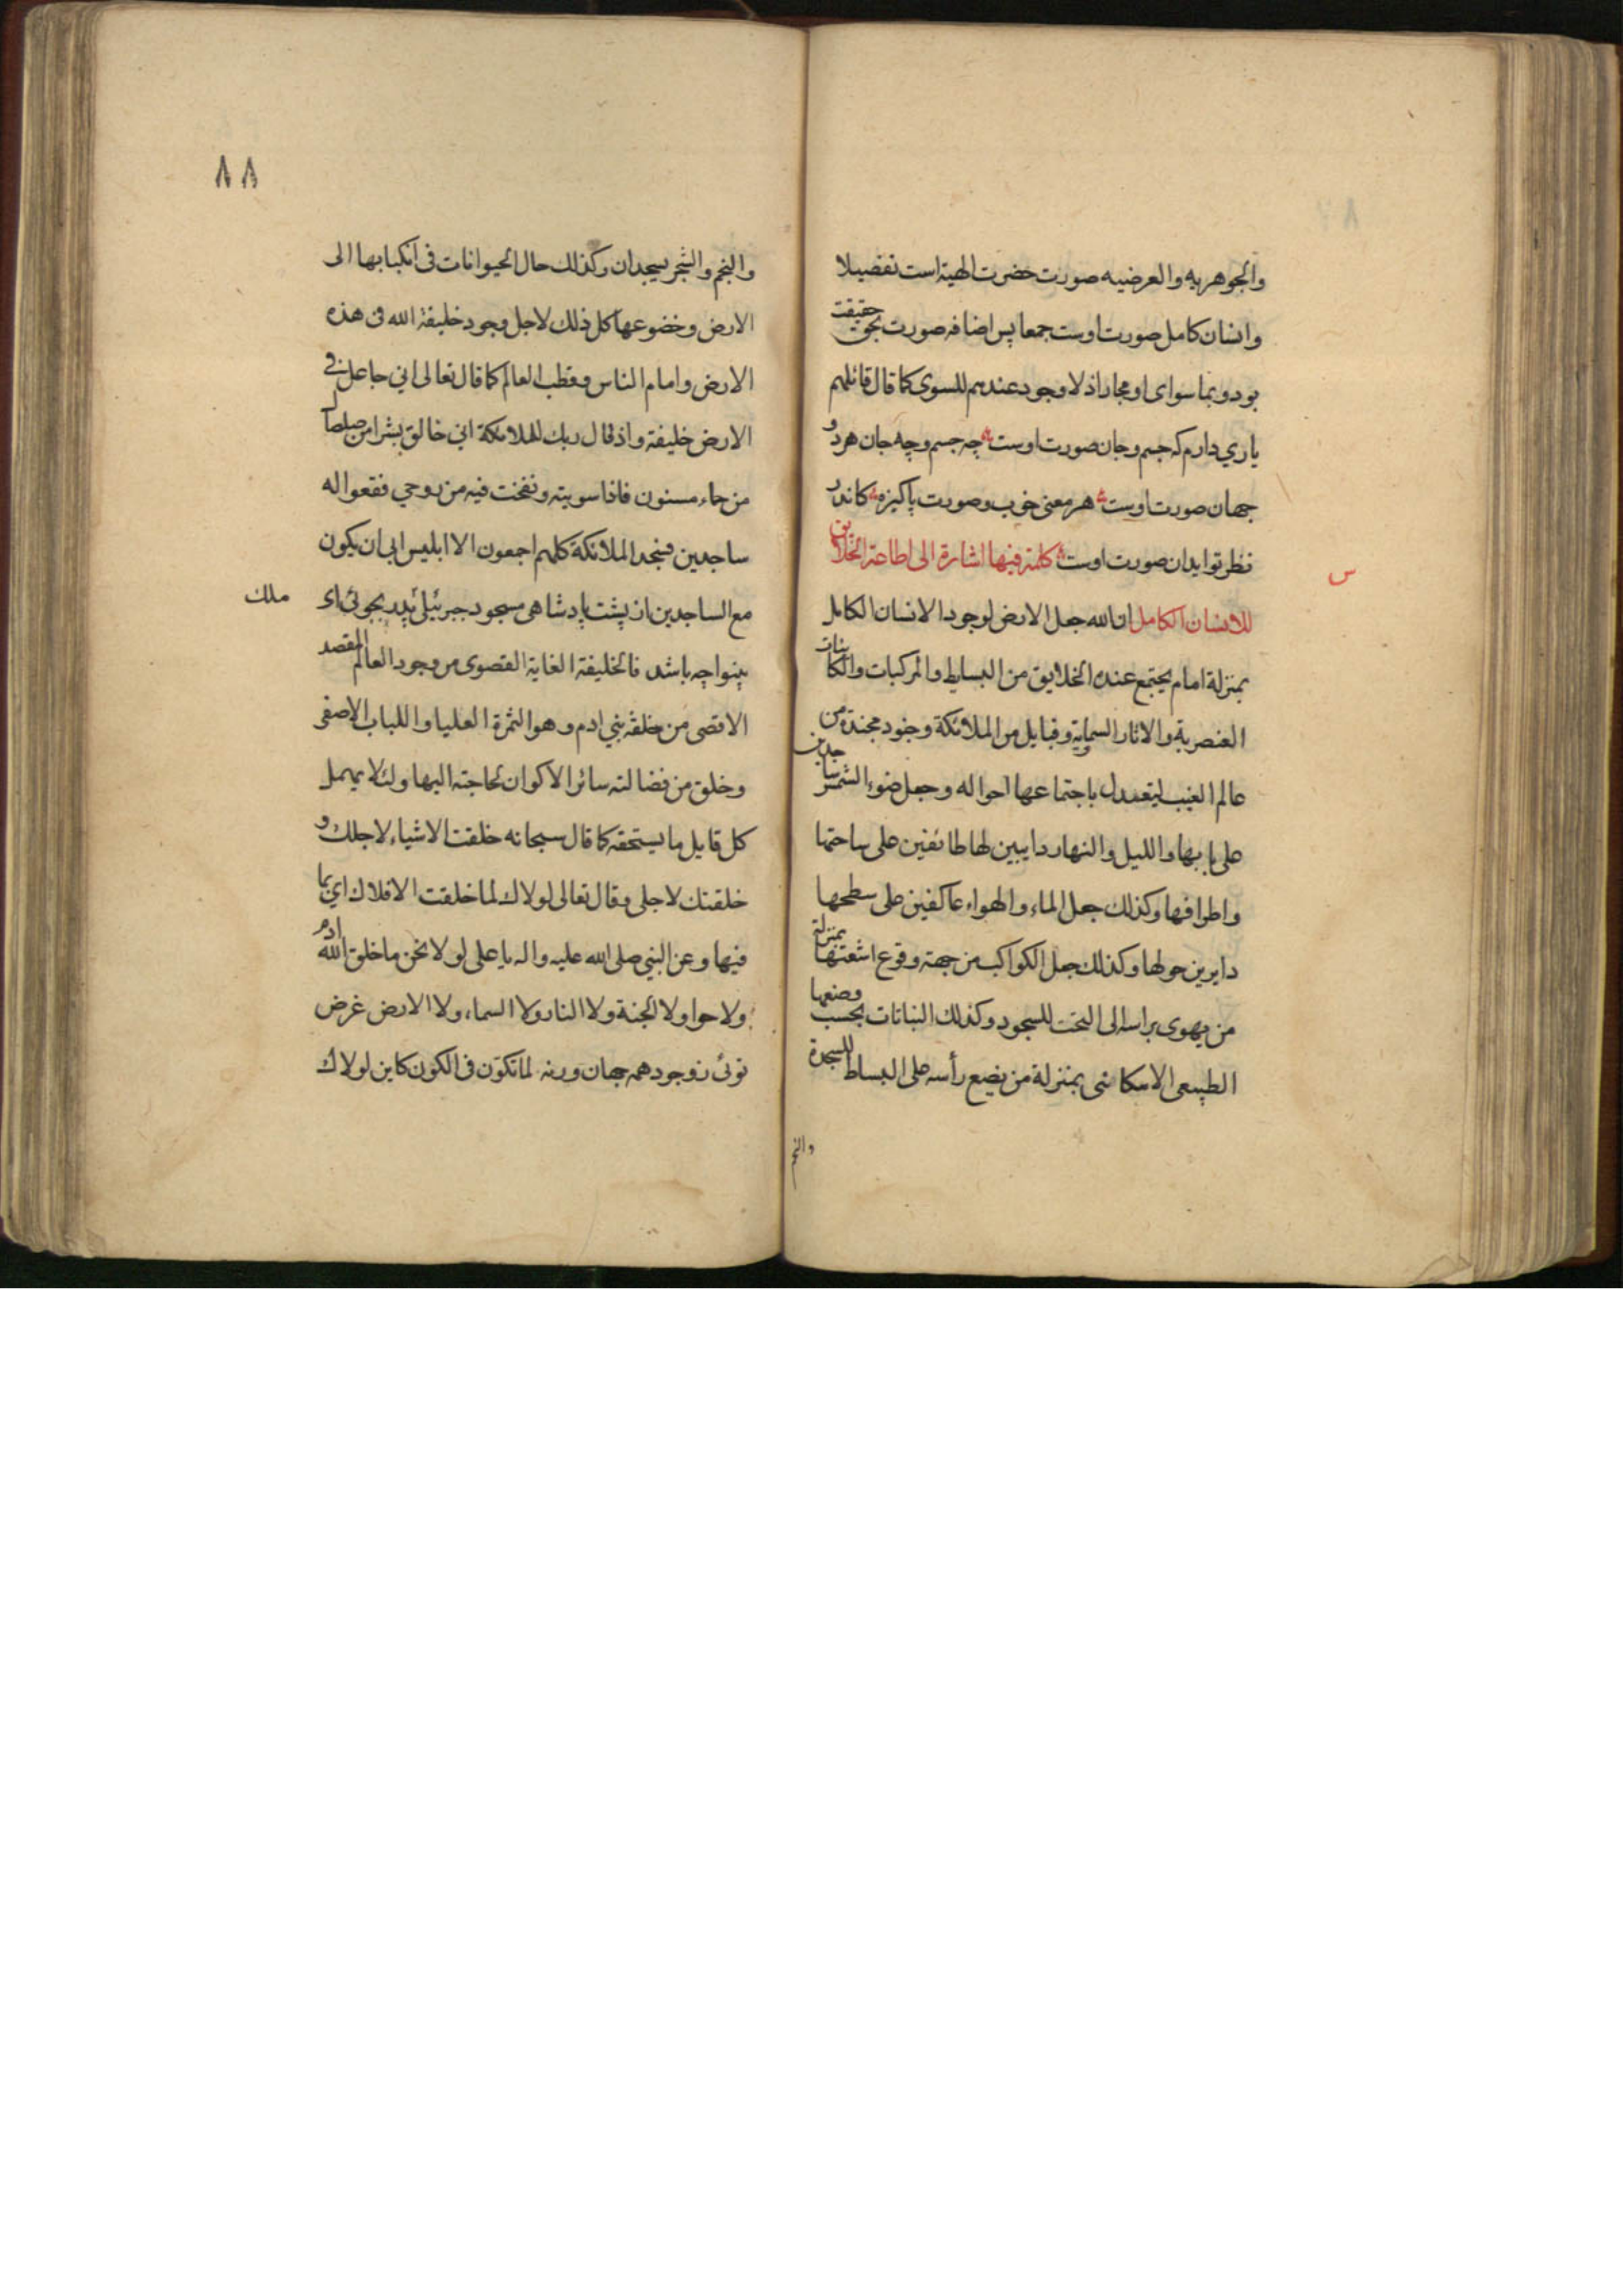 والجوهريه والعرضيه صورت حضرت الهية است تفصيلا
وانسان كامل صورت اوست جمعا پس اضافه صورت بحق حقيقت
بود و بما سواى او مجازا اذ لا وجود عندهم للسوى كما قال قائلهم
ياري دارم كه جسم و جان صورت اوست چه جسم و چه جان هر دو
جهان صورت اوست هر معنى خوب و صورت پاكيزه كاندر
نظر تو ايد ان صورت اوست كلمة فيها اشارة الى اطاعة الخلايق
س
للانسان الكامل ان الله جعل الارض لوجود الانسان الكامل
بمنزلة امام يجتمع عنده الخلايق من البسايط والمركبات والكاينات
العنصرية والاثار السماوية وقبايل من الملائكة وجنود مجندة من
عالم الغيب ليتعدل باجتماعها احواله وجعل ضوء الشمس ساجدين
على بابها والليل والنهار دايبين لها طائفين على ساحتها
واطرافها وكذلك جعل الماء والهواء عاكفين على سطحها
دايرين حولها وكذلك جعل الكواكب من جهة وقوع اشعتها بمنزلة
من يهوى براسه الى التحت للسجود وكذلك النباتات بحسب وضعها
الطبيعى الامكانى بمنزلة من يضع رأسه على البساط للسجدة
والنجم
٨٨
والنجم والشجر يسجدان وكذلك حال الحيوانات فى انكبابها الى
الارض وخضوعها كل ذلك لاجل وجود خليفة الله فى هذه
الارض وامام الناس وقطب العالم كما قال تعالى اني جاعل في
الارض خليفة واذ قال ربك للملائكة اني خالق بشرا من صلصال
من حماء مسنون فاذا سويته ونفخت فيه من روحي فقعوا له
ساجدين فسجد الملائكة كلهم اجمعون الا ابليس ابى ان يكون
مع الساجدين از پشت پادشاهى مسجود جبرئيلى پدر بجوئى اى
ملك
بينوا چه باشد فالخليفة الغاية القصوى من وجود العالم المقصد
الاقصى من خلقة بني ادم وهو الثمرة العليا واللباب الاصفى
وخلق من فضالته سائر الاكوان لحاجته اليها ولئلا يهمل
كل قابل ما يستحقه كما قال سبحانه خلقت الاشياء لاجلك و
خلقتك لاجلى وقال تعالى لولاك لما خلقت الافلاك اي بما
فيها وعن النبي صلى الله عليه واله يا على لولا نحن ما خلق الله ادم
ولا حوا ولا الجنة ولا النار ولا السماء ولا الارض غرض
توئى ز وجود همه جهان ورنه لما تكوّن فى الكون كاين لولاك